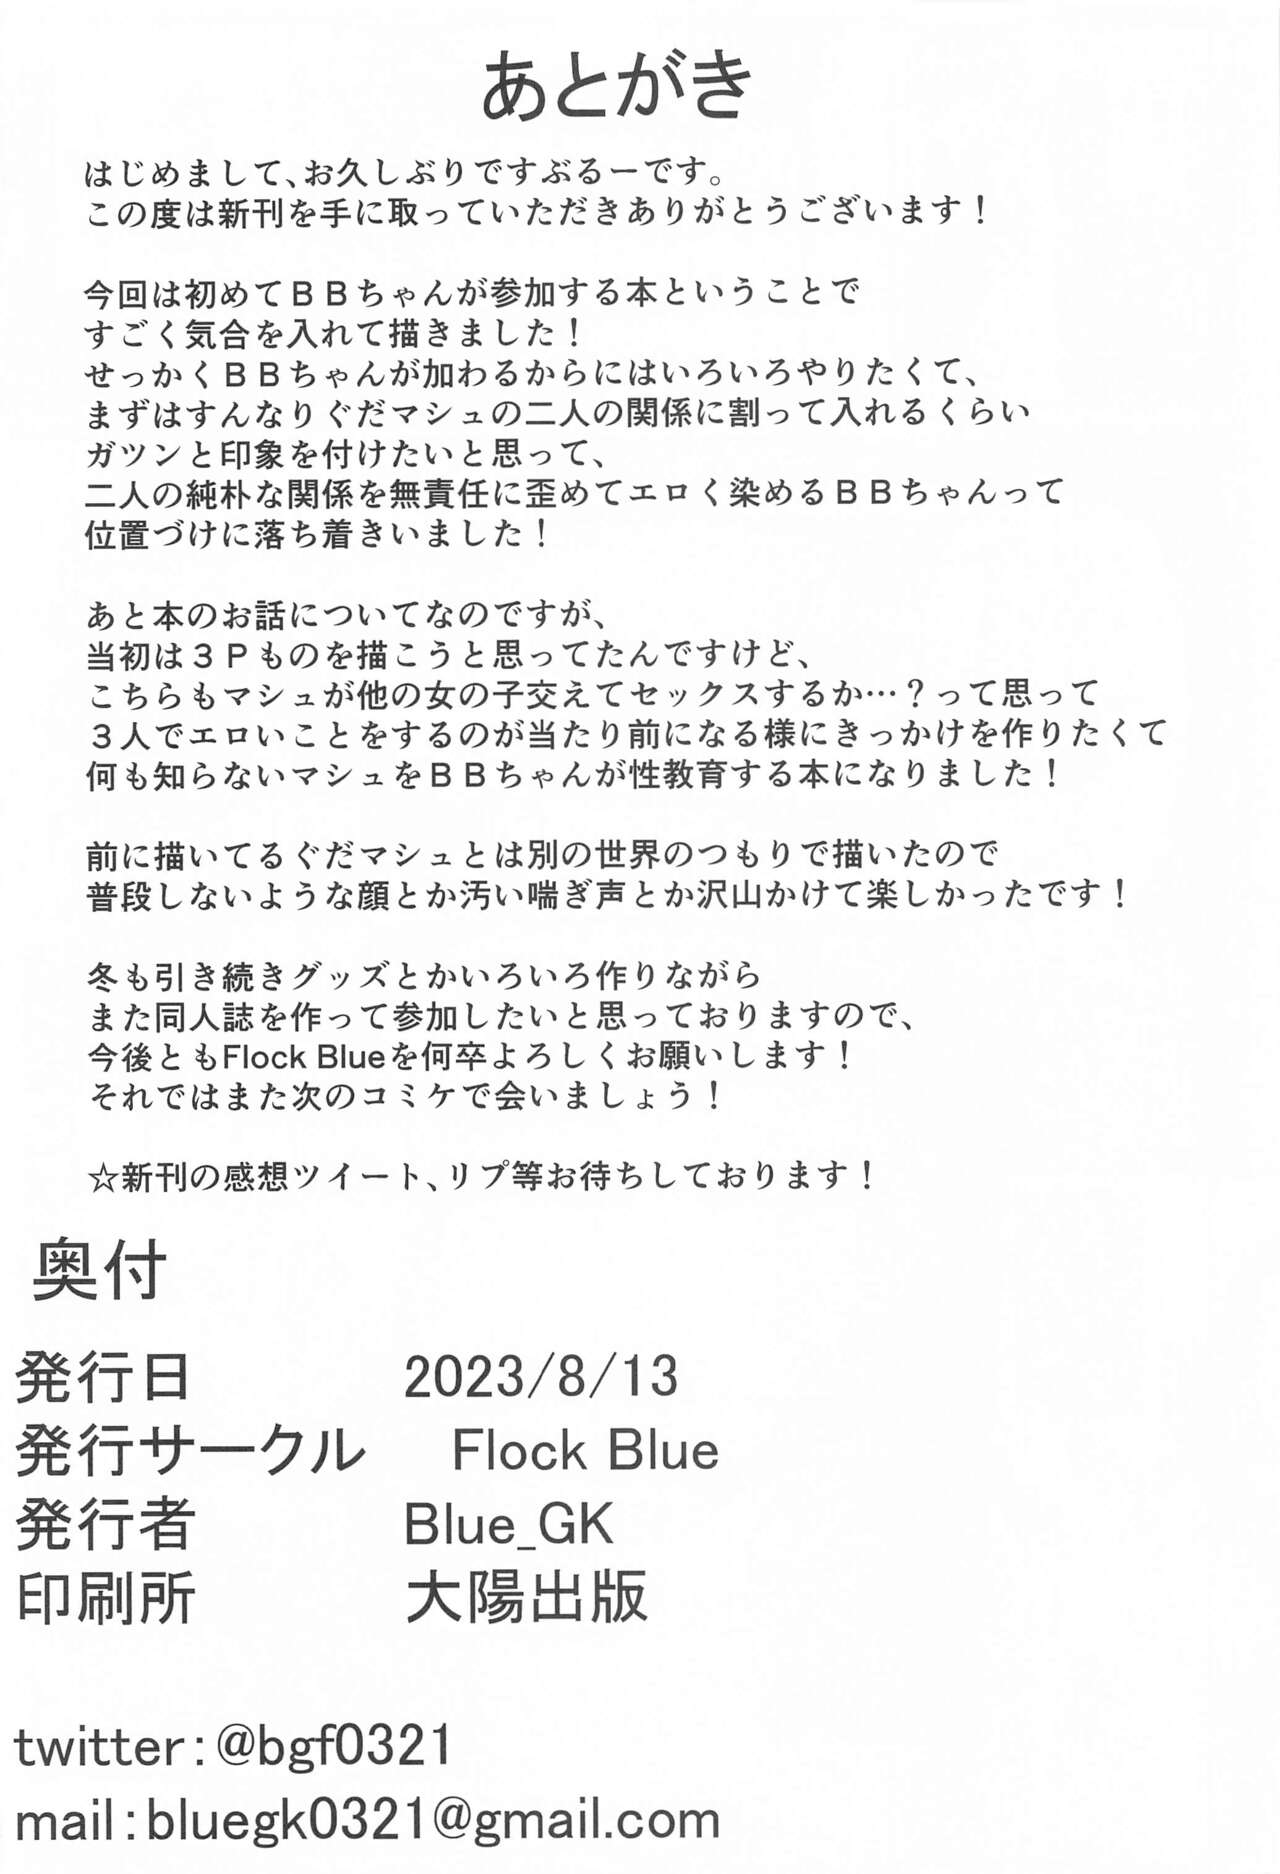 あとがき
はじめまして、お久しぶりですぶるーです。
この度は新刊を手に取っていただきありがとうございます！
今回は初めてＢＢちゃんが参加する本ということで
すごく気合を入れて描きました！
せっかくＢＢちゃんが加わるからにはいろいろやりたくて、
まずはすんなりぐだマシュの二人の関係に割って入れるくらい
ガツンと印象を付けたいと思って、
二人の純朴な関係を無責任に歪めてエロく染めるＢＢちゃんって
位置づけに落ち着きいました！
あと本のお話についてなのですが、
当初は３Ｐものを描こうと思ってたんですけど、
こちらもマシュが他の女の子交えてセックスするか…？って思って
３人でエロいことをするのが当たり前になる様にきっかけを作りたくて
何も知らないマシュをＢＢちゃんが性教育する本になりました！
前に描いてるぐだマシュとは別の世界のつもりで描いたので
普段しないような顔とか汚い喘ぎ声とか沢山かけて楽しかったです！
冬も引き続きグッズとかいろいろ作りながら
また同人誌を作って参加したいと思っておりますので、
今後ともFlock Blueを何卒よろしくお願いします！
それではまた次のコミケで会いましょう！
☆新刊の感想ツイート、リプ等お待ちしております！
奥付
発行日 2023/8/13
発行サークル Flock Blue
発行者 Blue_GK
印刷所 大陽出版
twitter:@bgf0321
mail:bluegk0321@gmail.com